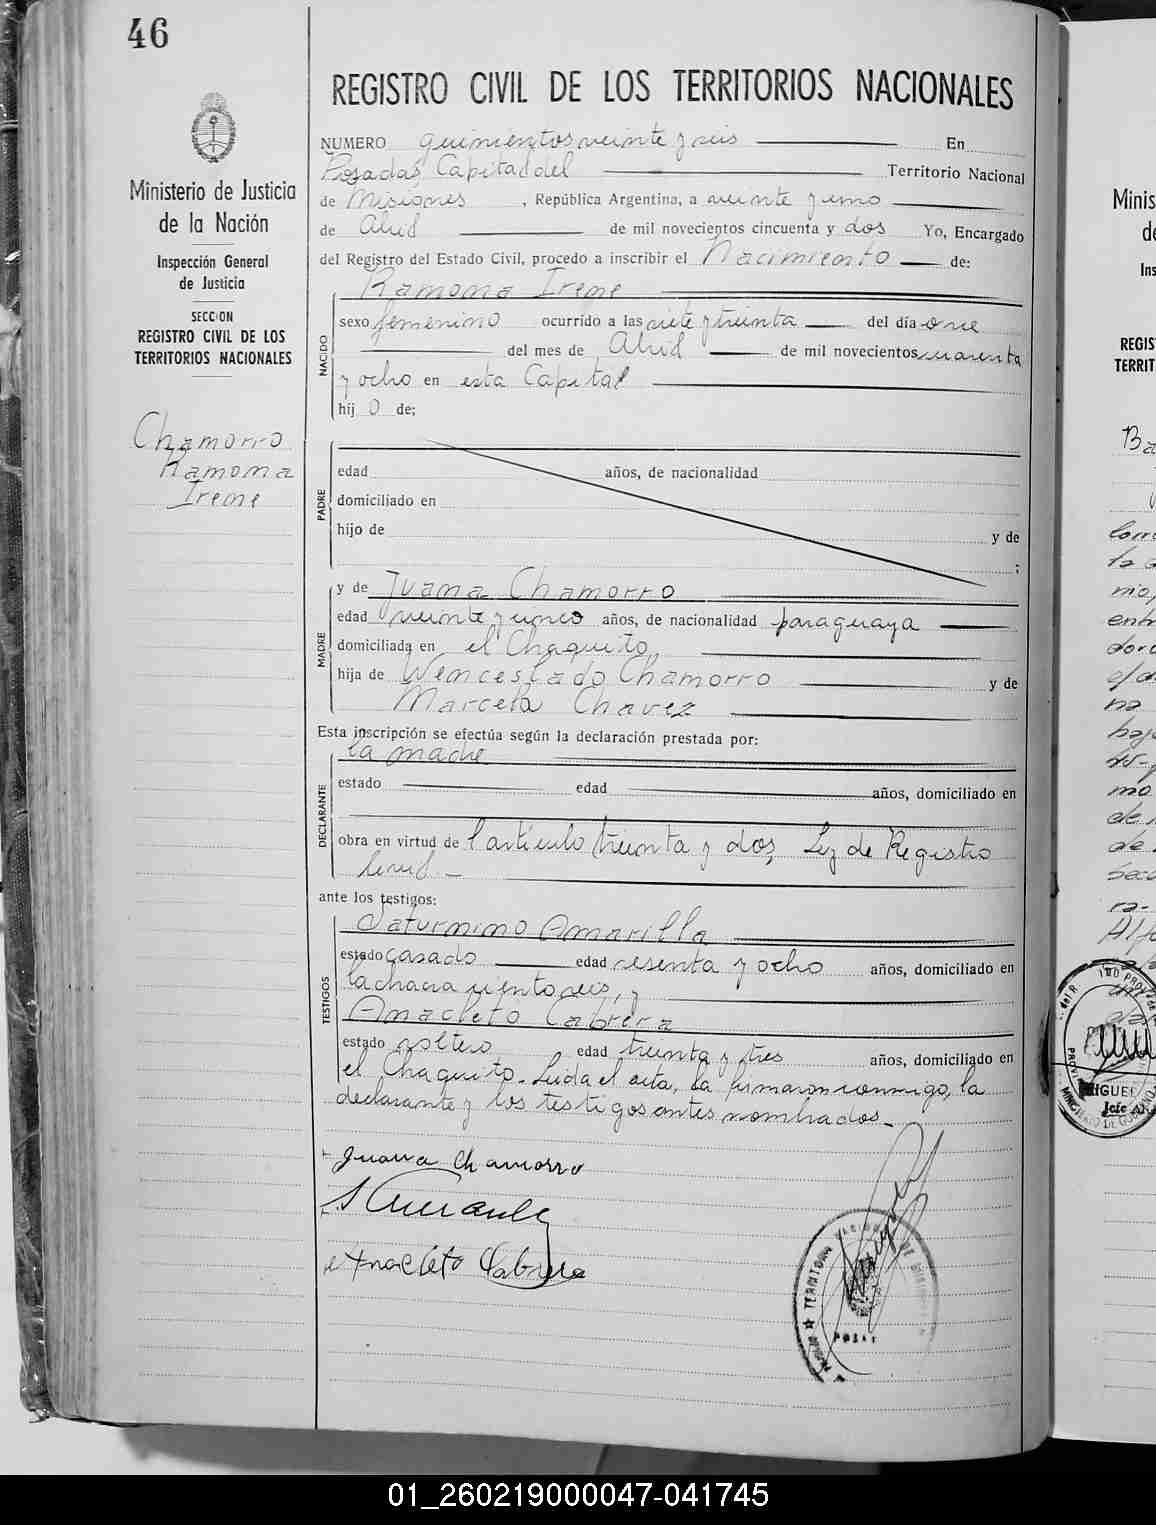 46
Ministerio de Justicia
de la Nación
Inspección General
de Justicia
SECCION
REGISTRO CIVIL DE LOS
TERRITORIOS NACIONALES
Chamorro
Ramona
Irene
REGISTRO CIVIL DE LOS TERRITORIOS NACIONALES
NUMERO quinientos veinte y seis En
Posadas, Capital del Territorio Nacional
de Misiones, República Argentina, a veinte y uno
de Abril de mil novecientos cincuenta y dos Yo, Encargado
del Registro del Estado Civil, procedo a inscribir el Nacimiento de:
NACIDO
Ramona Irene
sexo femenino ocurrido a las siete y treinta del día once
del mes de Abril de mil novecientos cuarenta
y ocho en esta Capital
hij o de;
PADRE
edad años, de nacionalidad
domiciliado en
hijo de y de
;
MADRE
y de Juana Chamorro
edad veinte y cinco años, de nacionalidad paraguaya
domiciliada en el Chaquito,
hija de Wenceslado Chamorro y de
Marcela Chavez
Esta inscripción se efectúa según la declaración prestada por:
DECLARANTE
la madre
estado edad años, domiciliado en
obra en virtud de l artículo treinta y dos, Ley de Registro
Civil.-
ante los testigos:
TESTIGOS
Saturnino Amarilla
estado casado edad sesenta y ocho años, domiciliado en
la chacra ciento seis, y
Anacleto Cabrera
estado soltero edad treinta y tres años, domiciliado en
el Chaquito. Leída el acta, la firmaron conmigo, la
declarante y los testigos antes nombrados.-
Juana Chamorro
Anacleto Cabrera
TERRITORIO
Minis
de
Ins
REGIS
TERRIT
Ba
IGUEL
Jefe
01_260219000047-041745